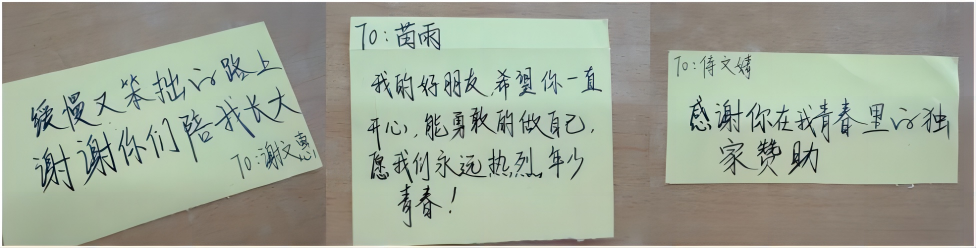 缓慢又笨拙的路上
谢谢你们陪我长大
To:谢文惠
To:苗雨
我的好朋友,希望你一直
开心,能勇敢的做自己,
愿我们永远热烈,年少
青春!
To:侍文婧
感谢你在我青春里的独
家赞助